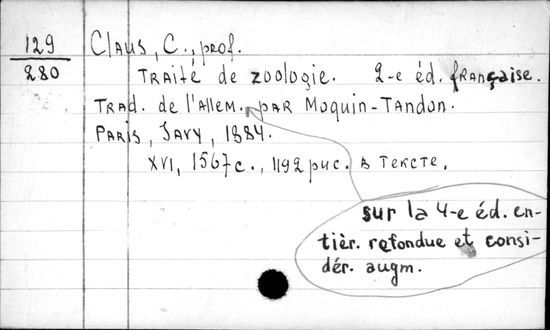 129
280
Claus, C., prof.
Traité de zoologie. 2-e éd. française.
Trad. de l'allem. par Moquin-Tandon.
Paris, Savy, 1884.
XVI, 1567 с., 1192 рис. в тексте.
sur la 4-e éd. en-
tièr. refondue et consi-
dér. augm.